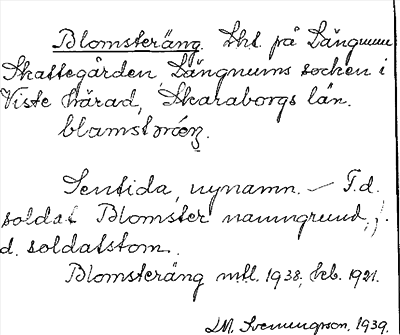 Blomsteräng. Lht. på Långnum
Skattegården, Långnums socken i
Viste härad, Skaraborgs län.
Sentida, nynamn. – F.d.
soldat Blomster namngrund, f.
d. soldatstom.
Blomsteräng mtl. 1938, keb. 1921.
J.M. Svennungsson, 1939.